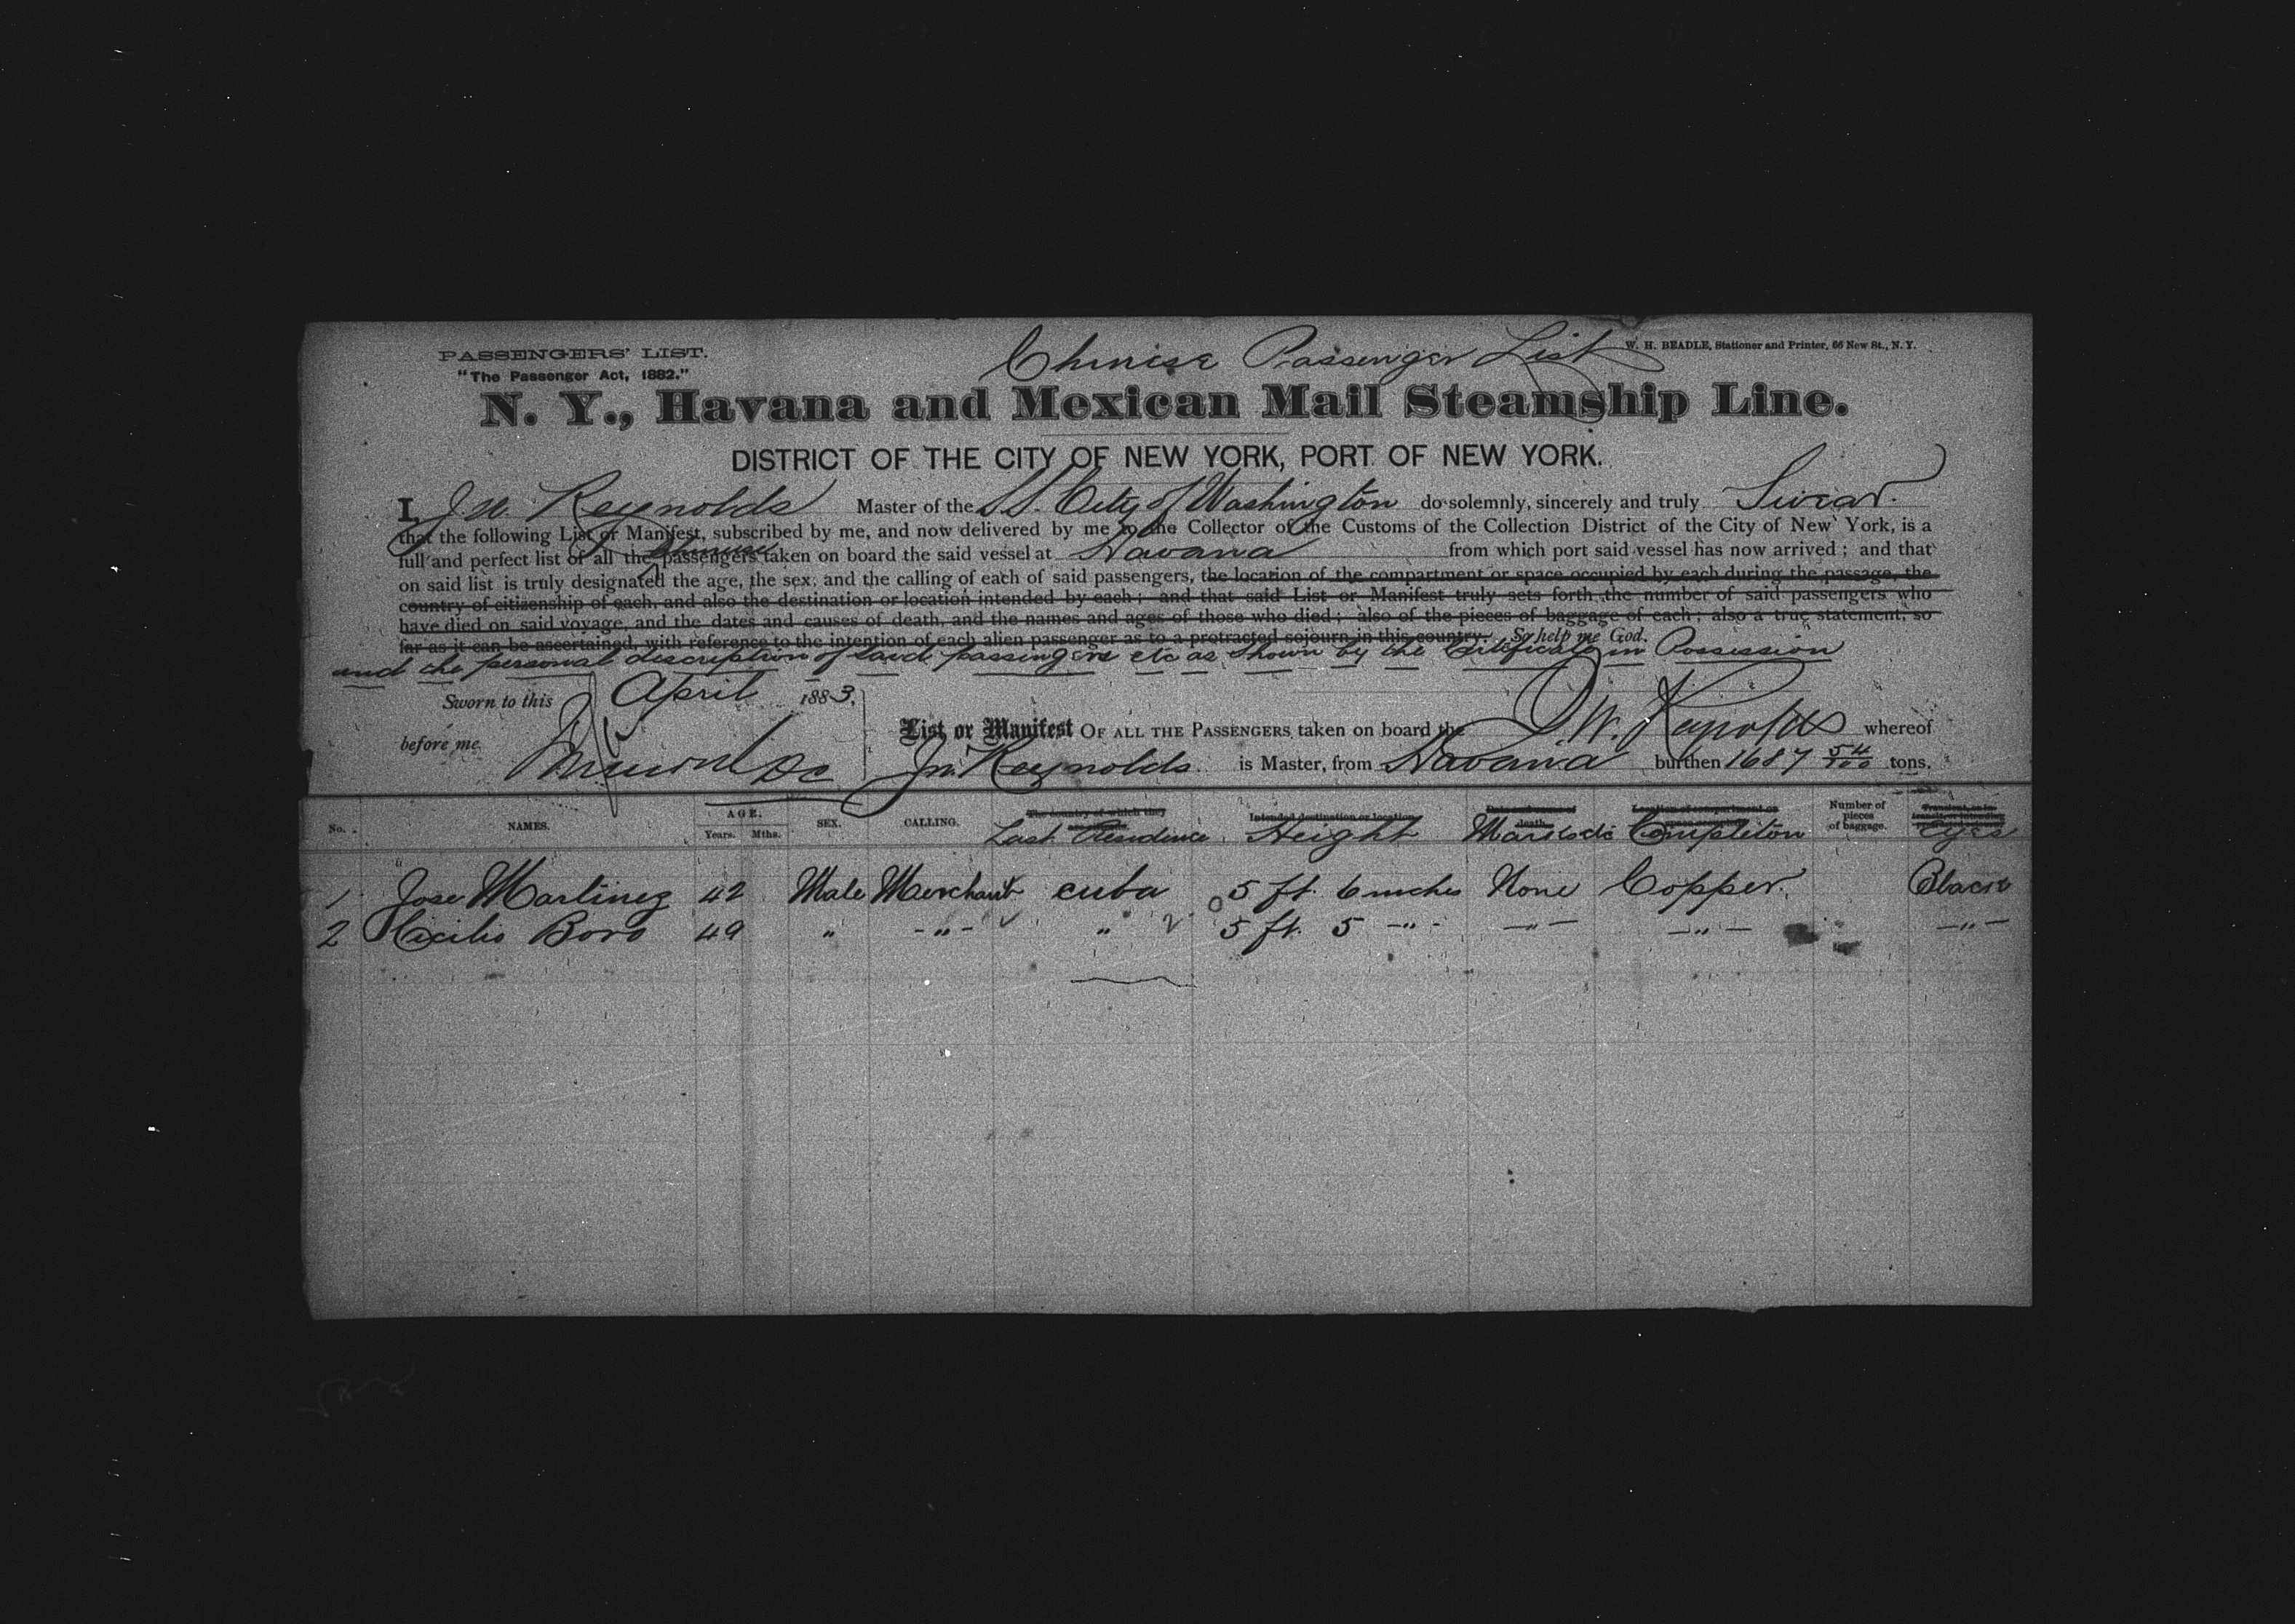 PASSENGERS' LIST.
Chinise Passenger List
W. H. BEADLE, Stationer and Printer, 66 New St., N. Y.
"The Passenger Act, 1882."
N. Y., Havana and Mexican Mail Steamship Line.
DISTRICT OF THE CITY OF NEW YORK, PORT OF NEW YORK.
I, J W. Reynolds Master of the SS. City of Washington do solemnly, sincerely and truly Swear.
that the following List or Manifest, subscribed by me, and now delivered by me to the Collector of the Customs of the Collection District of the City of New York, is a
full and perfect list of all the Chinese passengers taken on board the said vessel at Havana from which port said vessel has now arrived; and that
on said list is truly designated the age, the sex, and the calling of each of said passengers, the location of the compartment or space occupied by each during the passage, the
country of citizenship of each, and also the destination or location intended by each; and that said List or Manifest truly sets forth the number of said passengers who
have died on said voyage, and the dates and causes of death, and the names and ages of those who died; also of the pieces of baggage of each; also a true statement, so
far as it can be ascertained, with reference to the intention of each alien passenger as to a protracted sojourn in this country. So help me God.
and the personal description of said passingers etc as shown by the Certificate in Possession
Sworn to this April 1883.
before me
List or Manifest OF ALL THE PASSENGERS taken on board the J. W. Reynolds whereof
Jn. Reynolds is Master, from Havana burthen 1687 54/100 tons.
No. NAMES. AGE. Years. Mths. SEX. CALLING. The country of which they Last Residence Intended destination or location Height Date and cause of death. Marks &c Location of compartment or Complition Number of pieces of baggage. Eyes
1 Jose Martinez 42 Male Merchant cuba 5 ft. 6 inches None Copper. Black
2 Cicilio Boro 49 " -"- " 5 ft. 5 -"- -"- -"- -"-